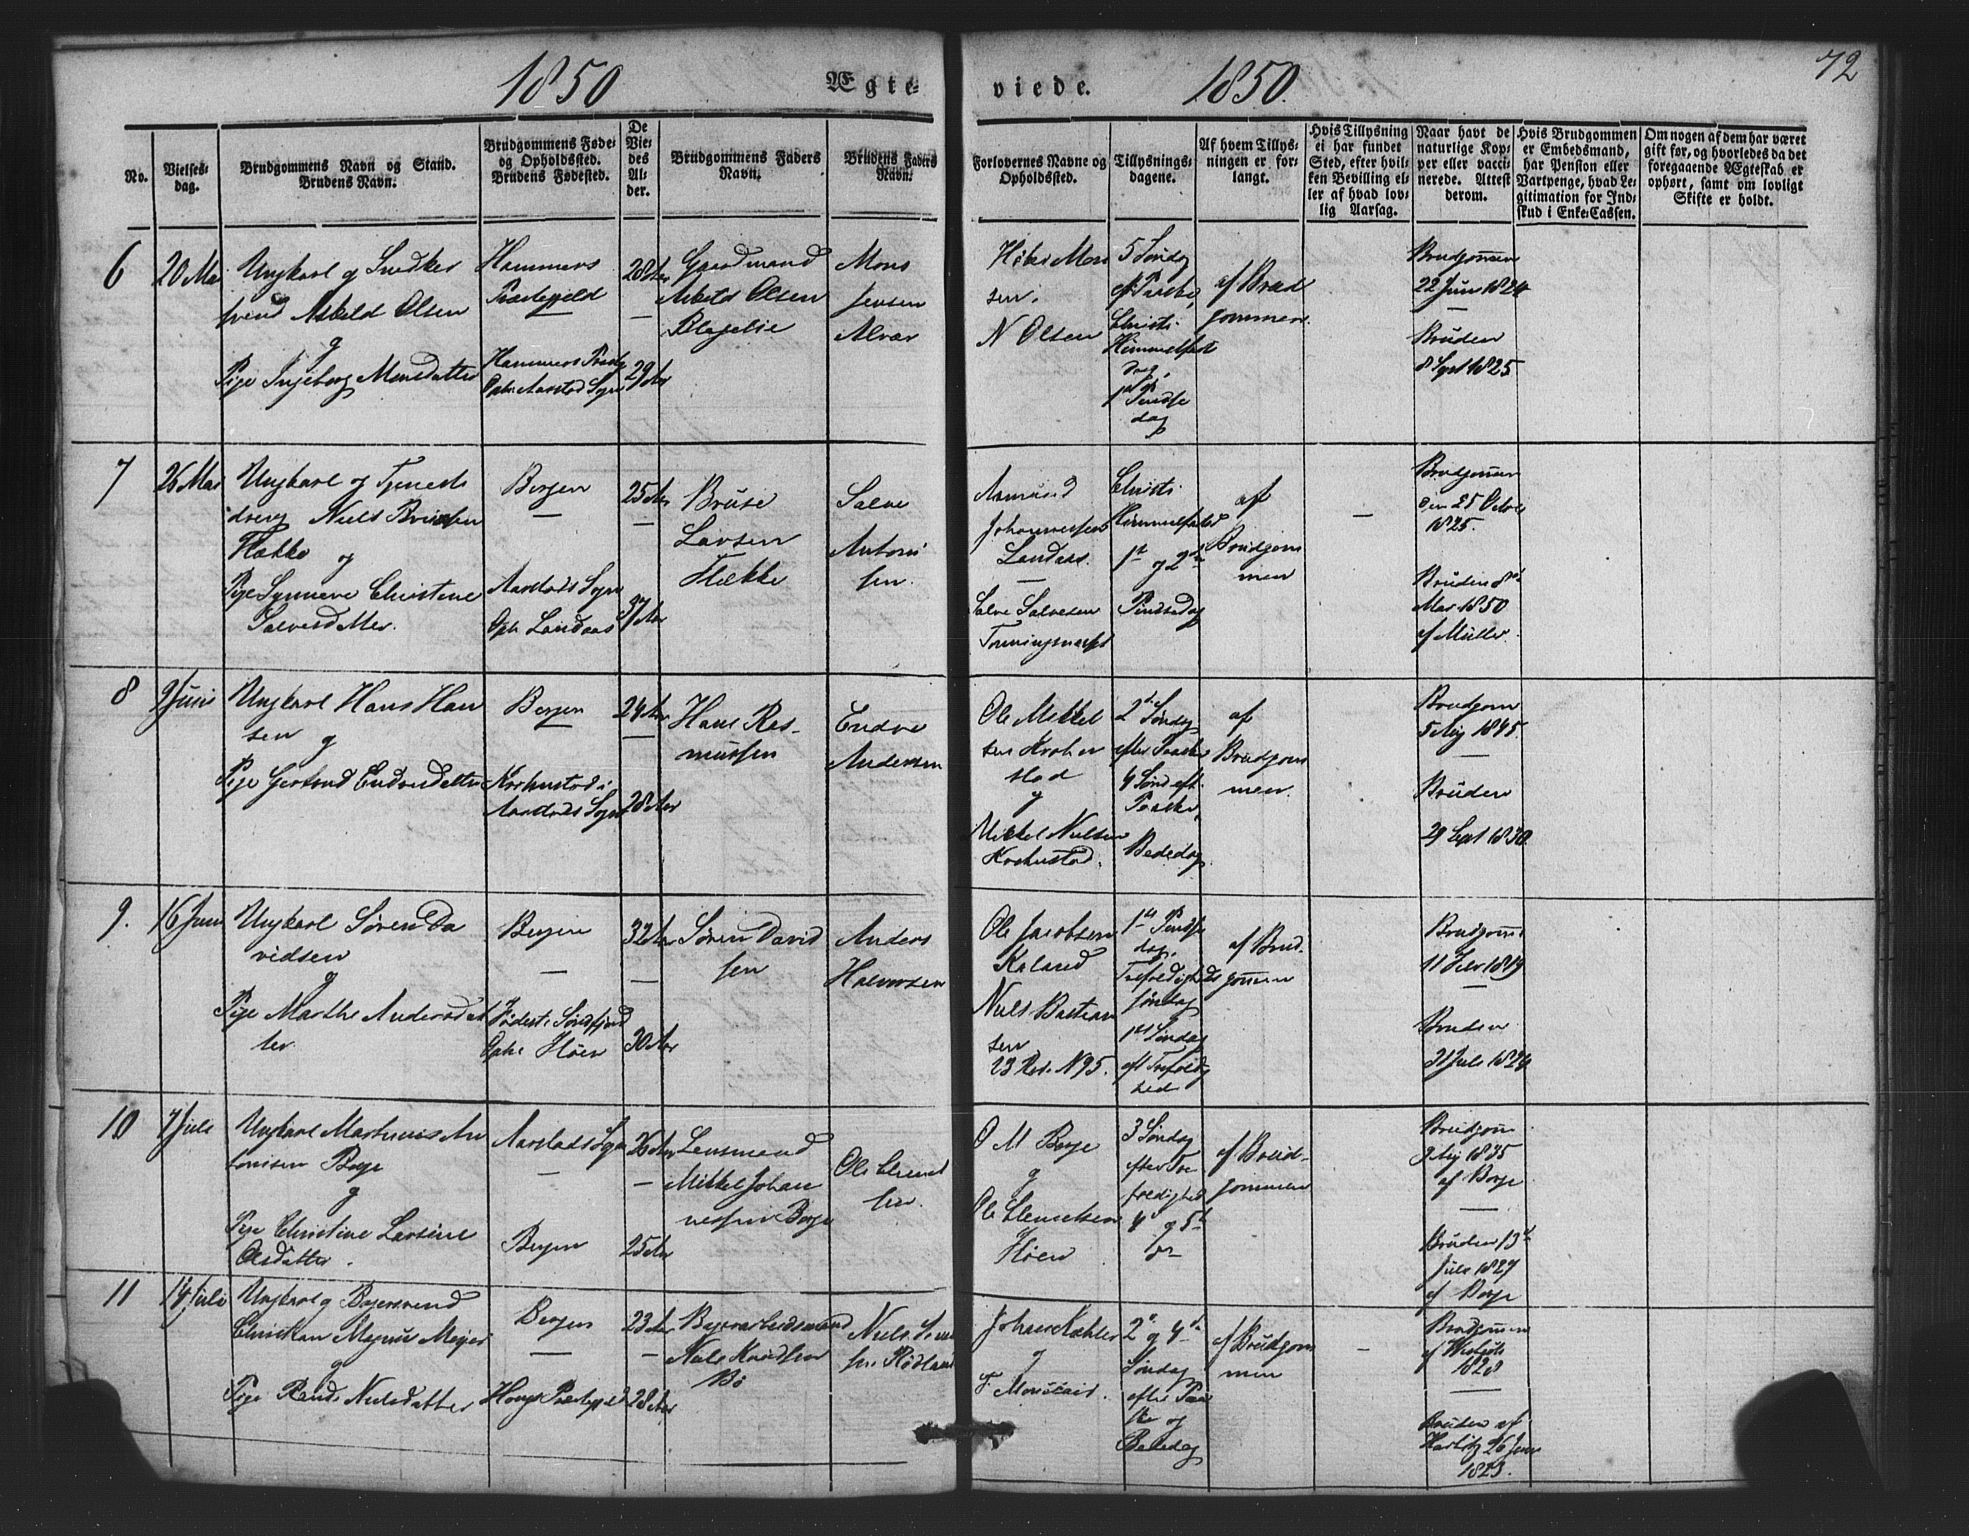 1850
Ægte-
viede.
1850.
72
No.
Vielses-
dag.
Brudgommens Navn og Stand.
Brudens Navn.
Brudgommens Føde-
og Opholdssted.
Brudens Fødested.
De
Vie-
des
Al-
der.
Brudgommens Faders
Navn.
Brudens Faders
Navn.
Forlovernes Navne og
Opholdssted.
Tillysnings-
dagene.
Af hvem Tillys-
ningen er for-
langt.
Hvis Tillysning
ei har fundet
Sted, efter hvil-
ken Bevilling el-
ler af hvad lov-
lig Aarsag.
Naar havt de
naturlige Kop-
per eller vacci-
nerede. Attest
derom.
Hvis Brudgommen
er Embedsmand,
har Pension eller
Vartpenge, hvad Le-
gitimation for Ind-
skud i Enke-Cassen.
Om nogen af dem har været
gift før, og hvorledes da det
foregaaende Ægteskab er
ophørt, samt om lovligt
Skifte er holdt.
6
20 Mai
Ungkarl og Snedker
svend Askild Olsen
og
Pige Ingeborg Monsdatter
Hammers
Præstegjeld
Hammers Præstg
Oph: Aarstad Sogn
28 Aar
29 Aar
Gaardmand
Olsen
Mons
Jensen
Alvær
sen.
N Olsen
5 Søndag
ef Paaske,
Christi
Himmelfart
dag,
1ste Pindse
dag
af Brud
gommen
Brudgommen
22 Juni 1824
Bruden
8 Sept 1825
7
26 Mai
Ungkarl og Tjeneste
dreng Niels
Flække og
Pige Synneve Christine
Salvesdatter.
Bergen
Aarstads Sogn
Oph: Landaas
25 Aar
37 Aar
Larsen
Flække
Salve
Antoni
sen.
Aamund
Johannessen
Landaas.
Salve Salvesen
Christi
Himmelfartsd
1st og 2den
Pindsedag
af
Brudgom
men
Brudgommen
den 25 Octob
1825.
Bruden 8de
Mai 1850
af Müller.
8
9 Juni
Ungkarl Hans Han
sen og
Pige Gertrud Endresdatter
Bergen
Kronstad i
Aarstads Sogn
24 Aar
28 Aar
Hans Ras-
mussen
Endre
Andersen
Ole Mikkel
sen Kron
stad
og
Mikkel Nielsen
Kronstad.
2den Søndag
efter Paaske
4 Sønd eft
Paaske,
Bededag
af
Brudgom
men.
Brudgom
5 Aug 1845.
Bruden
29 Sept 1830
9.
16 Juni
Ungkarl Søren Da
vidsen
og
Pige Marthe Andersdat
ter
Bergen
Fødest: Søndfjord
Oph: Høien
32 Aar
30 Aar
Søren David
sen
Anders
Halvorsen
Ole Jacobsen
Kaland
Niels Bastian
sen
23 Rod. N 95.
1ste Pindse
dag,
Trefoldigheds
søndag
1ste Søndag
eft Trefoldig
hed
af Brud-
gommen
Brudgomm
11 1819
Bruden
31 Juli 1824
10
7 Juli
Ungkarl Martinus An
tonisen Borge
og
Pige Christine Larsine
Olsdatter.
Aarstads Sogn
Bergen
26 Aar
25 Aar
Lensmand
Mikkel Johan
nessen Borge
Ole Clemet
sen.
O M Borge
og
Ole Clemetsen
Høien
3 Søndag
efter Tre
foldighed
4de og 5te
do
af Brud-
gommen
Brudgom
9 Aug 1835
af Borge
Bruden 13de
Juli 1827
af Borge
11
14 Juli
Ungkarl og Bagersvend
Christian Magnus Meyer
og
Pige Randi Nielsdatter
Bergen
Hougs Præstegjeld
23 Aar
28 Aar
Niels Knudsen
Bö
Niels
sen Rödland
Johan Køhler
og
2den og 4de
Søndag
efter Paa
ske og
Bededag
af Brudgom
men
Brudgommen
1828
Bruden af
26 Juni
1823.